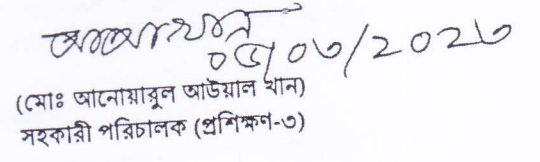 ০৫/০৩/২০২৩
(মোঃ আনোয়ারুল আউয়াল খান)
সহকারী পরিচালক (প্রশিক্ষণ-৩)